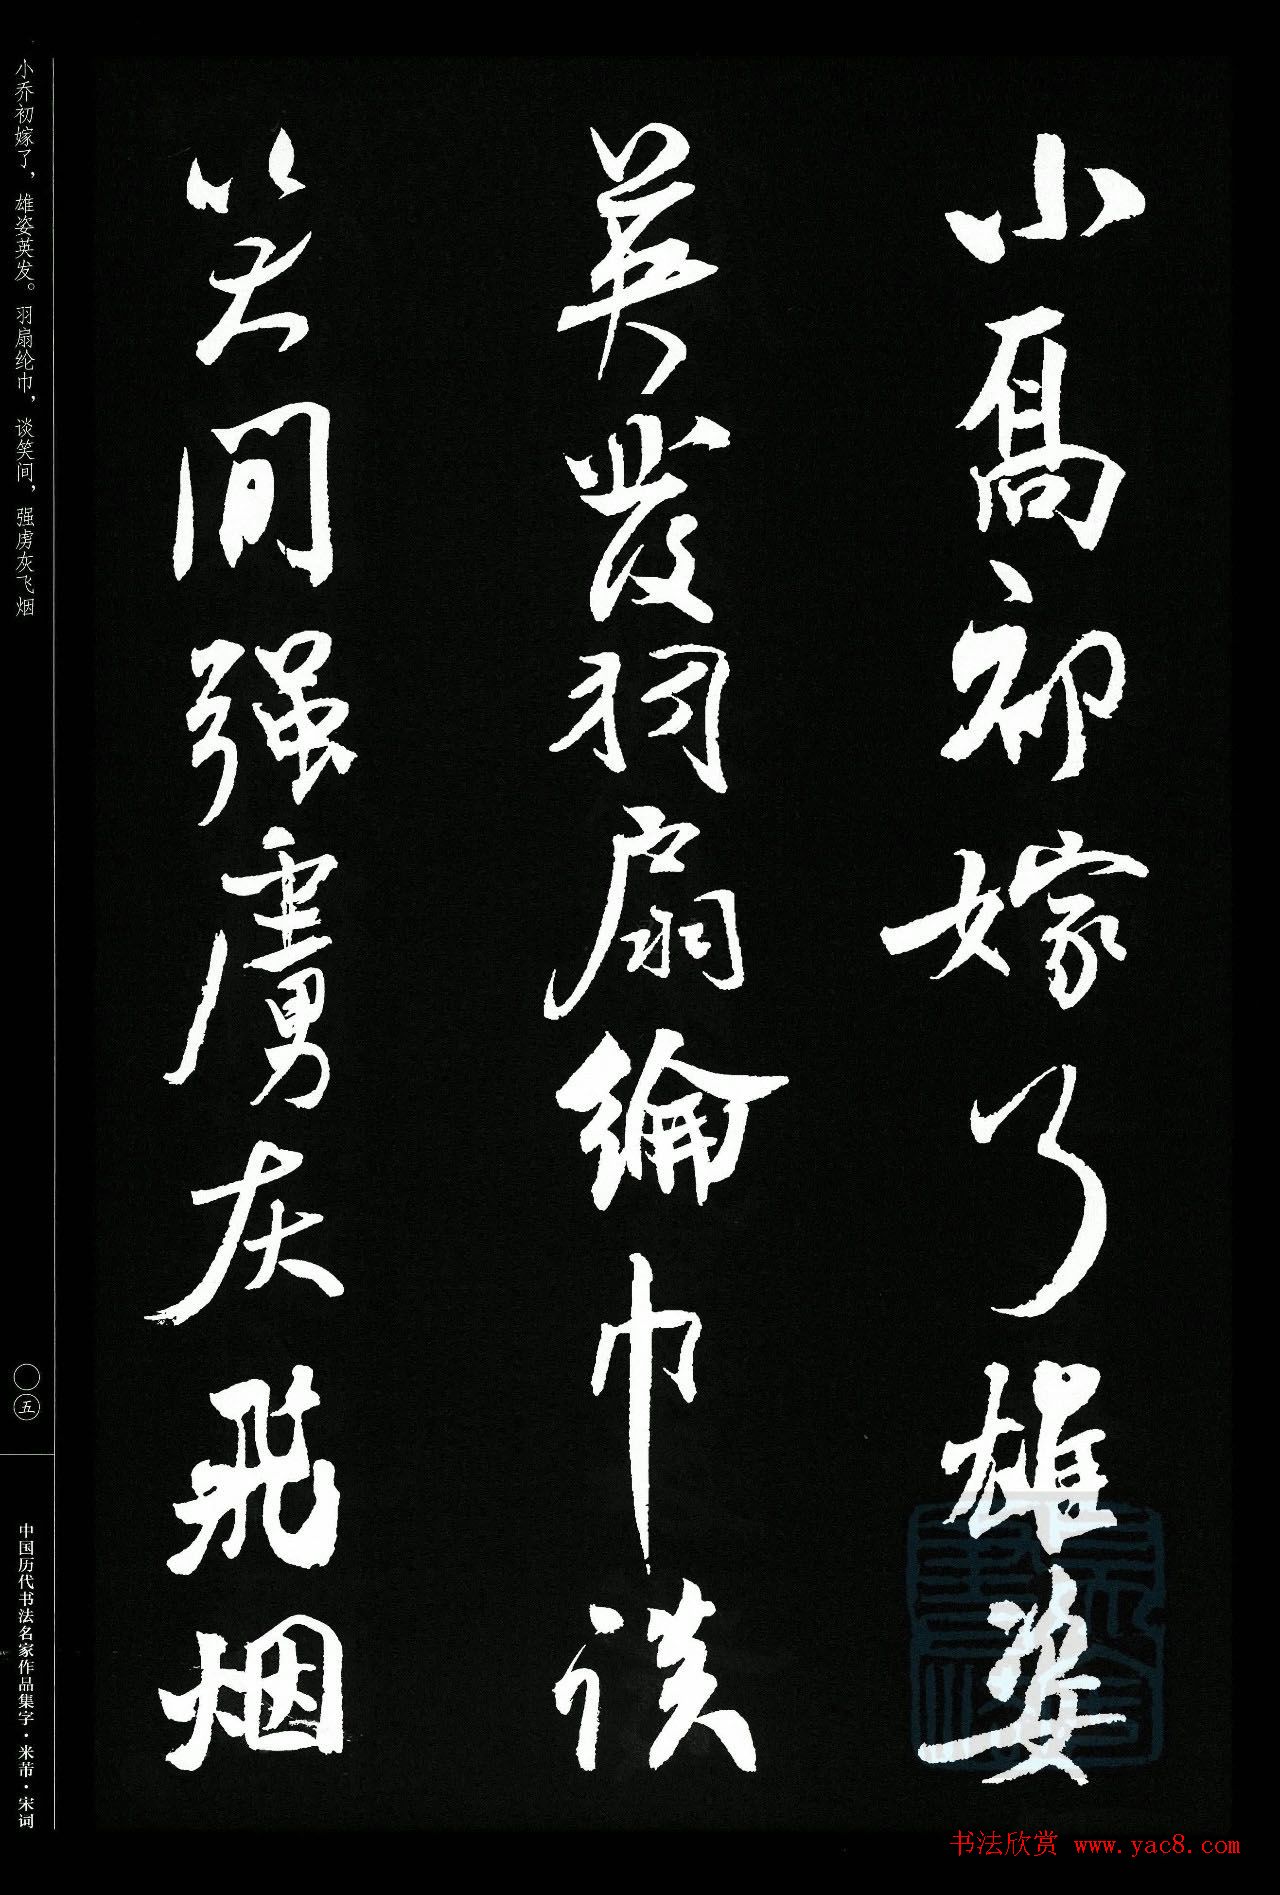 小喬初嫁了雄姿
英發羽扇綸巾談
笑間强虜灰飛烟
小乔初嫁了，雄姿英发。羽扇纶巾，谈笑间，强虏灰飞烟
〇五
中国历代书法名家作品集字·米芾·宋词
书法欣赏 www.yac8.com